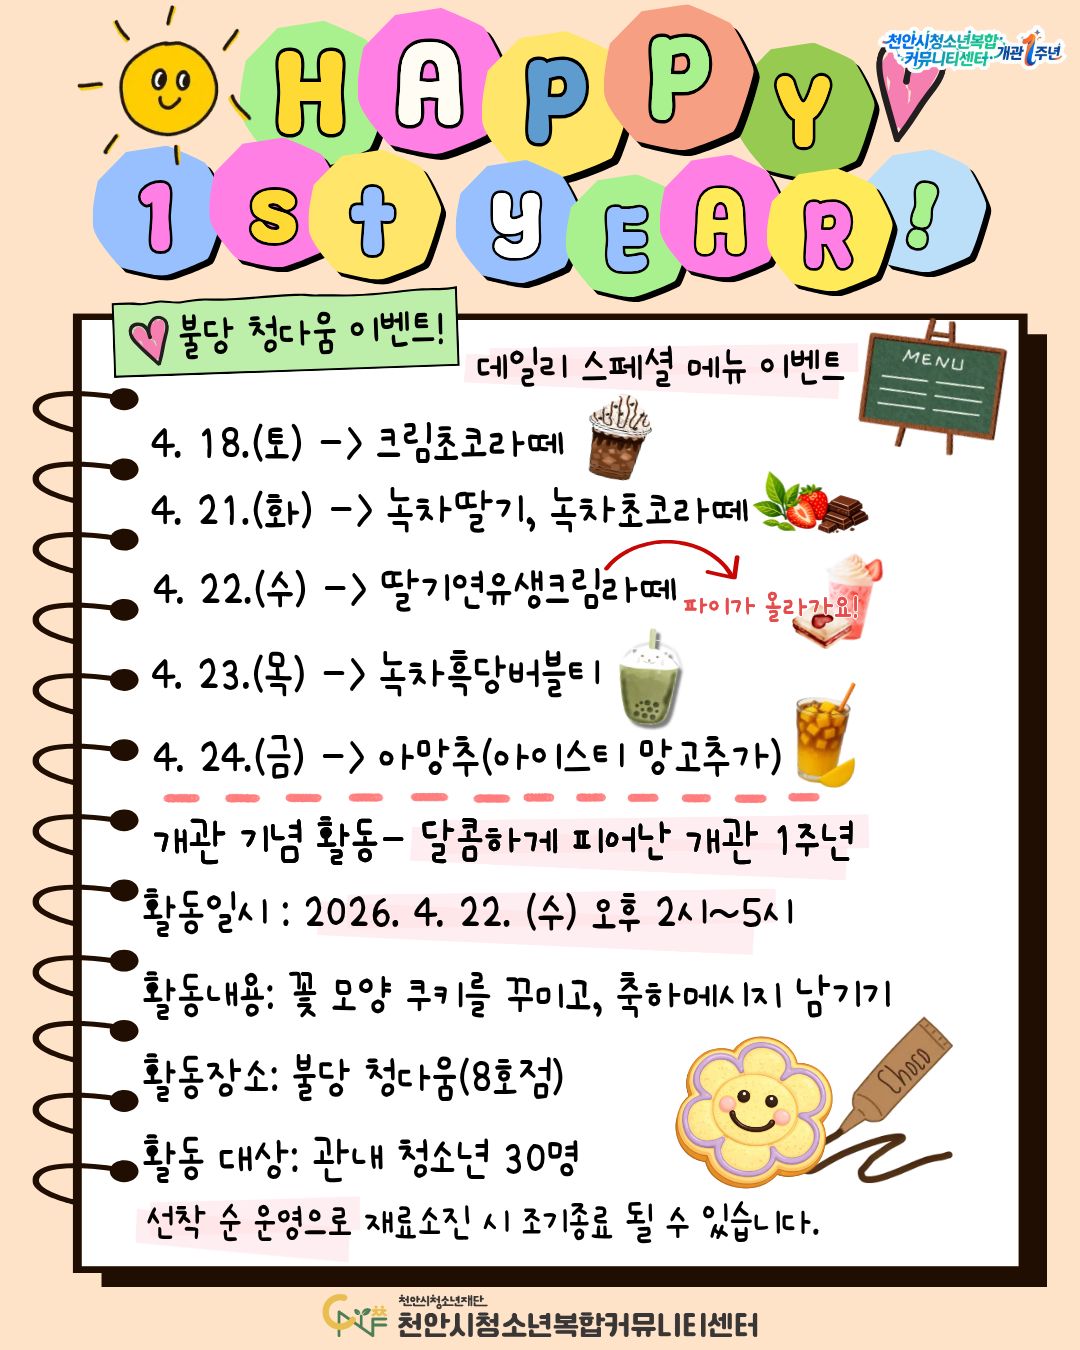 천안시청소년복합
커뮤니티센터 개관 1주년
HAPPY
1st yEAR!
불당 청다움 이벤트!
데일리 스페셜 메뉴 이벤트
MENU
4. 18.(토) -> 크림초코라떼
4. 21.(화) -> 녹차딸기, 녹차초코라떼
4. 22.(수) -> 딸기연유생크림라떼
파이가 올라가요!
4. 23.(목) -> 녹차흑당버블티
4. 24.(금) -> 아망추(아이스티 망고추가)
개관 기념 활동- 달콤하게 피어난 개관 1주년
활동일시 : 2026. 4. 22. (수) 오후 2시~5시
활동내용: 꽃 모양 쿠키를 꾸미고, 축하메시지 남기기
활동장소: 불당 청다움(8호점)
Choco
활동 대상: 관내 청소년 30명
선착 순 운영으로 재료소진 시 조기종료 될 수 있습니다.
천안시청소년재단
천안시청소년복합커뮤니티센터